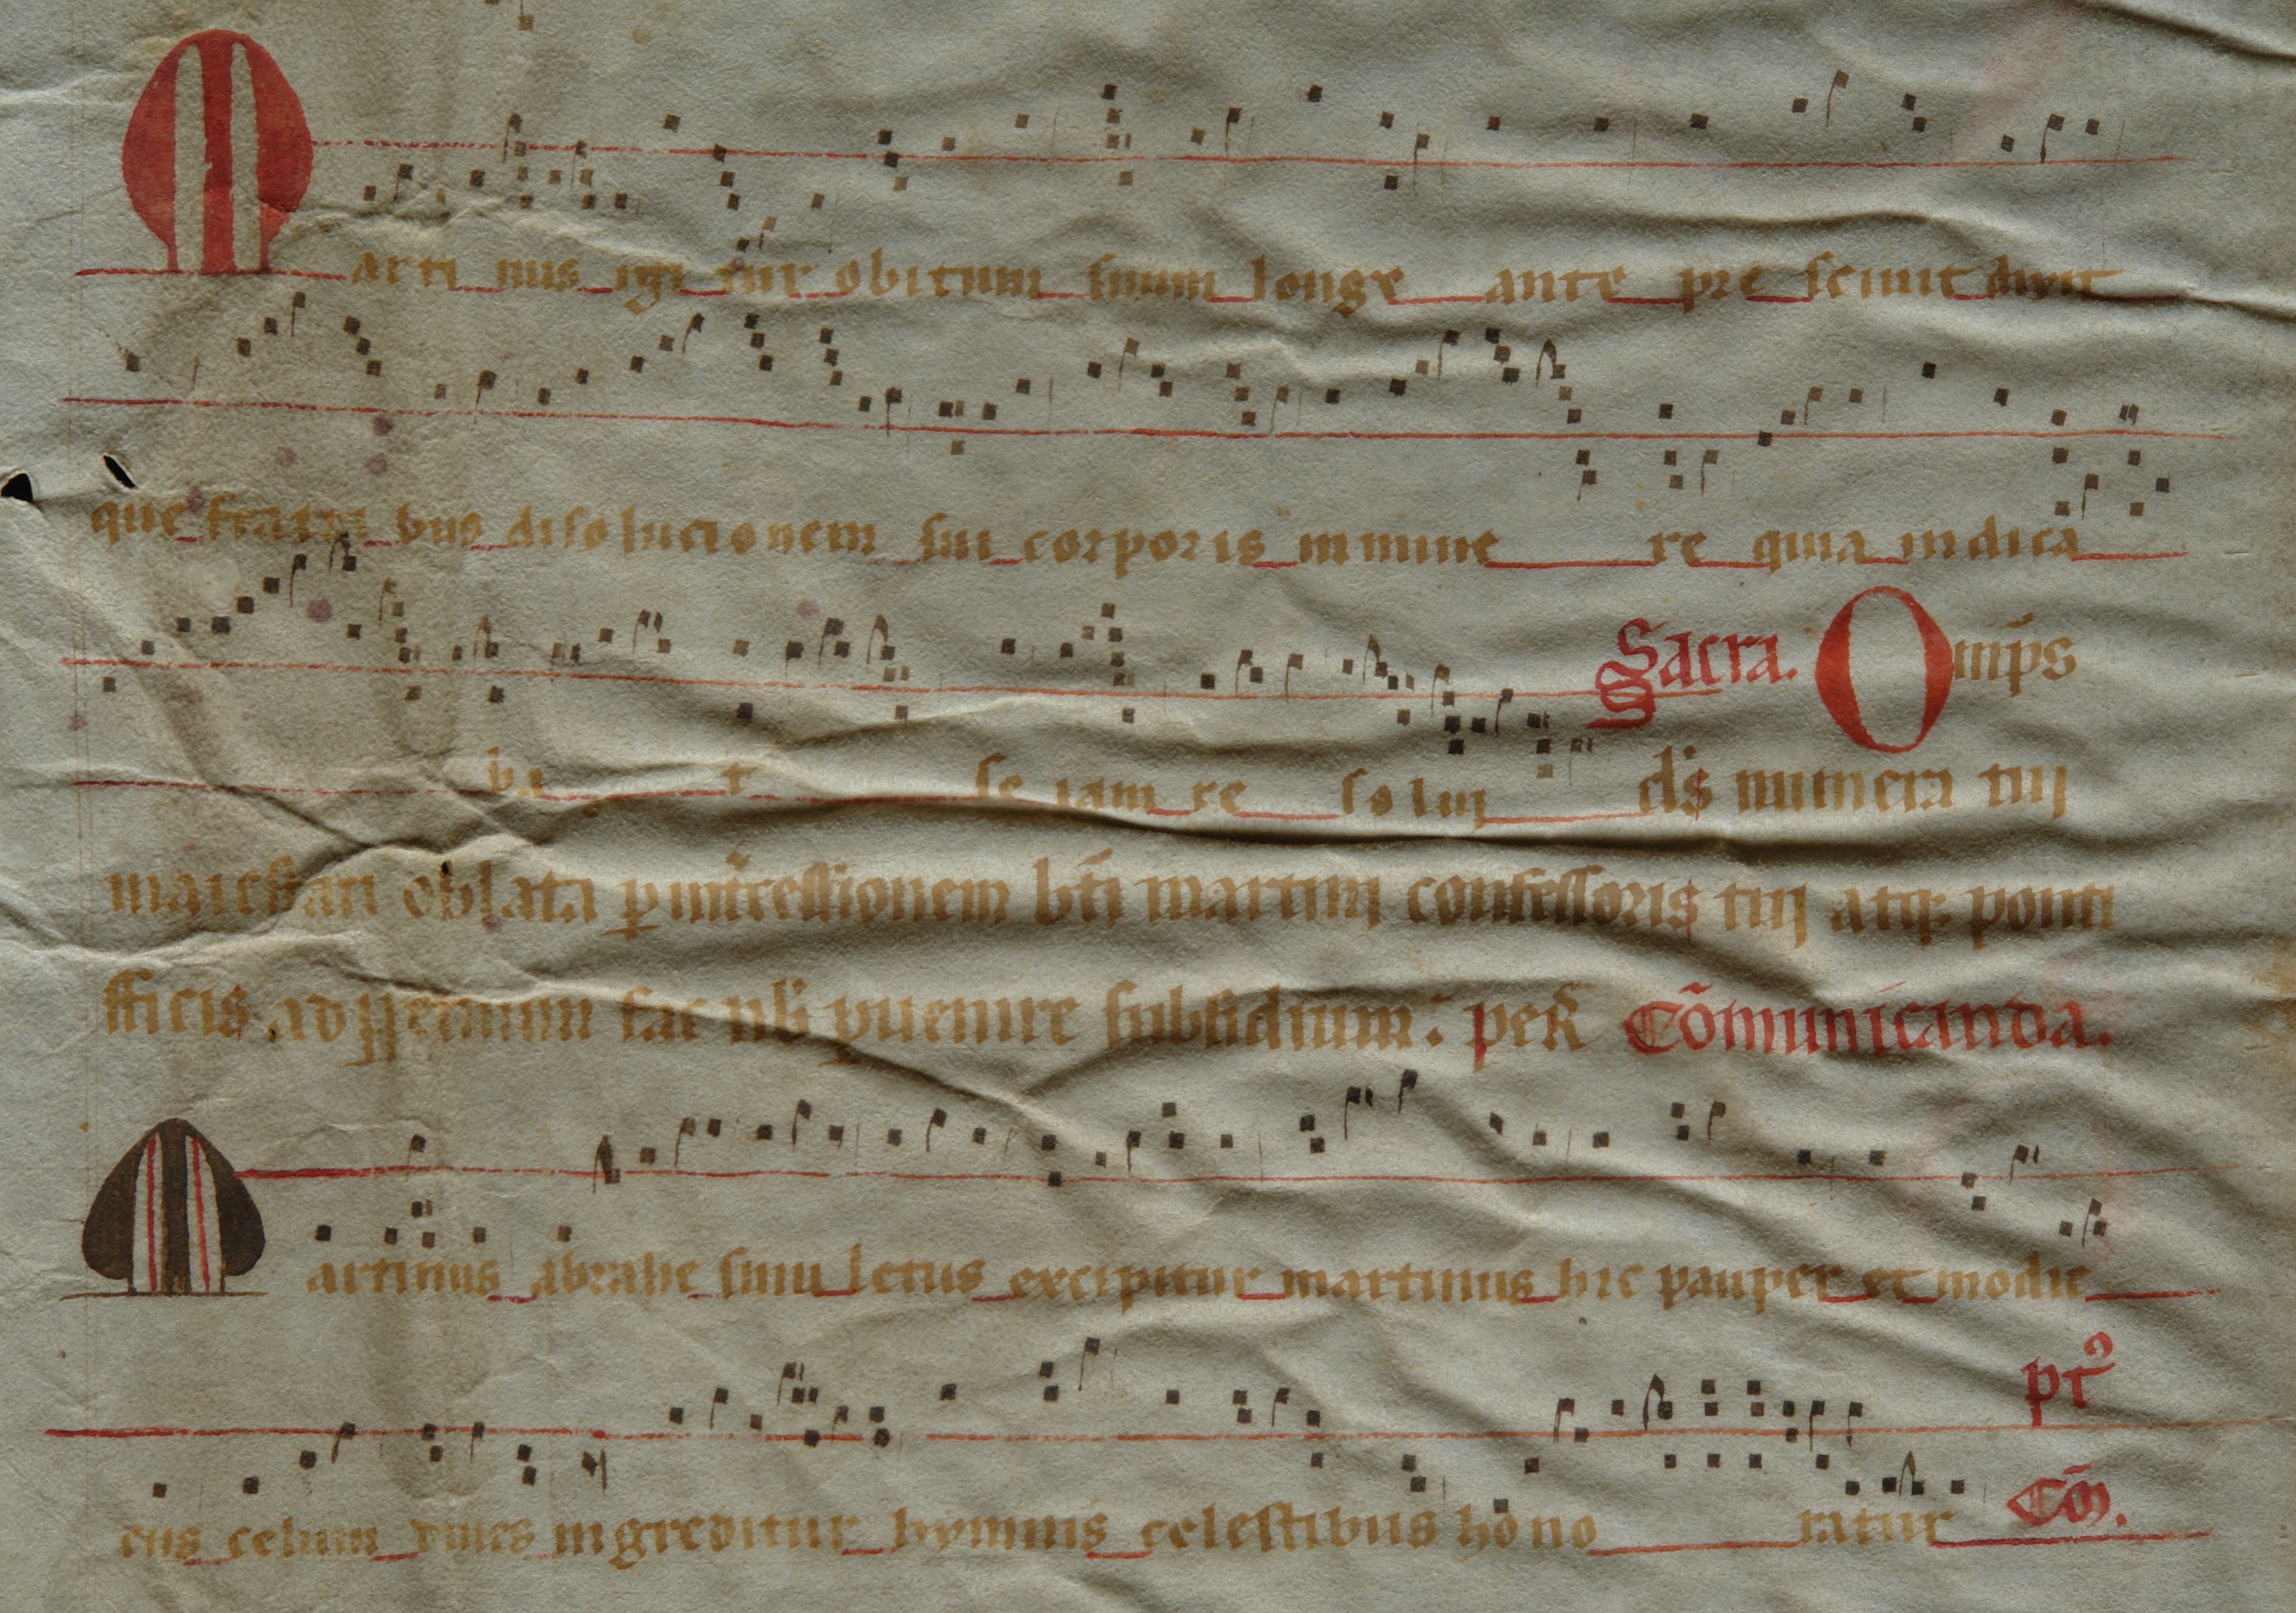 Marti nus igi tur obitum suum longe ante pre sciuit dixit
que fratri bus disolucionem sui corporis inmine re quia indica
ba t se iam re solui Sacra. Omp̄s
ds munera tuj
maiestati oblata p intercessionem bt̄i martinj confessoris tuj atq; ponti
fficis ad ppetuum fac nb̄ puenire subsidium. per Cōmunicanda.
Martinus abrahe sinu letus excipitur martinus hic pauper et modic
pr̄
cus celum diues ingreditur hymnis celestibus hono ratur Cō.